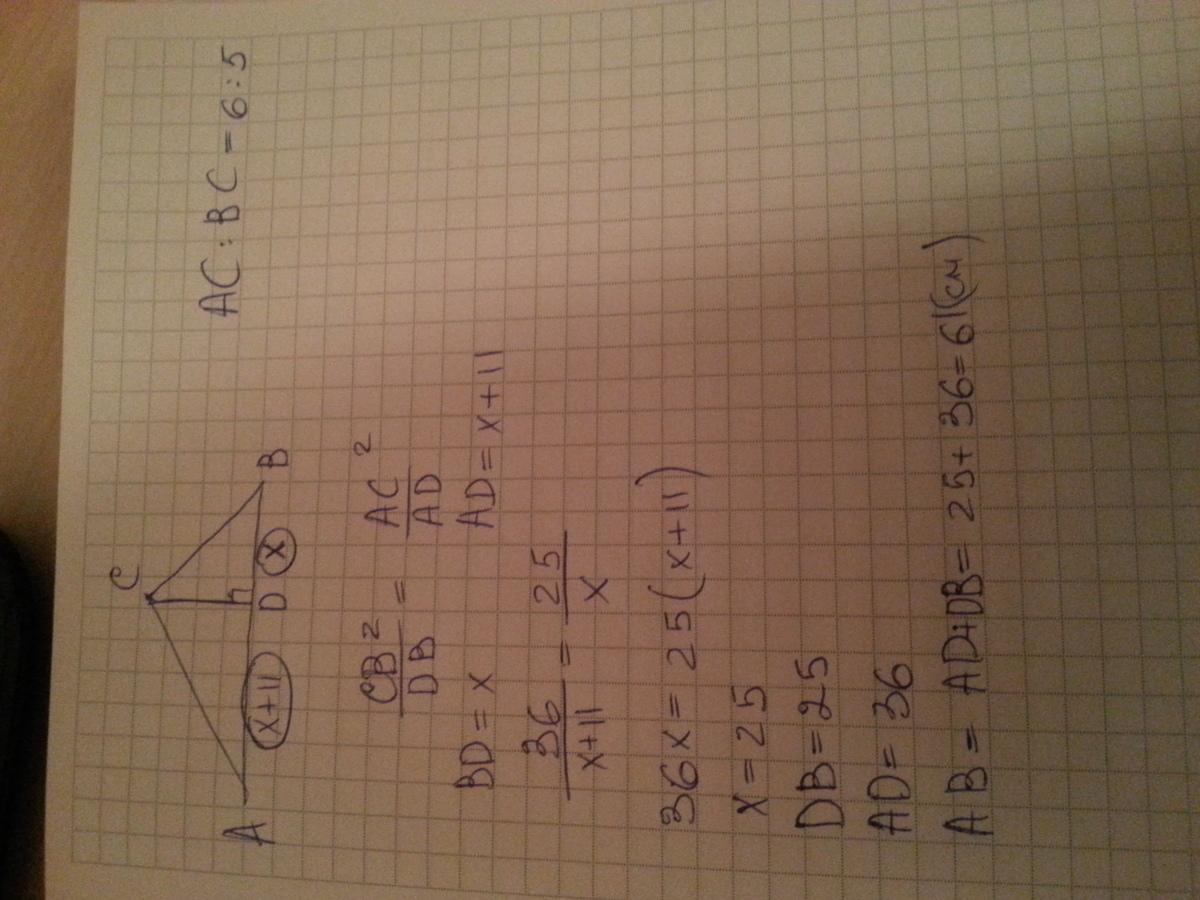 C
AC : BC = 6 : 5
A x+11 D x B
CB²/DB = AC²/AD
BD = x AD = x + 11
36/x+11 = 25/x
36x = 25(x+11)
x = 25
DB = 25
AD = 36
AB = AD+DB = 25 + 36 = 61(см)